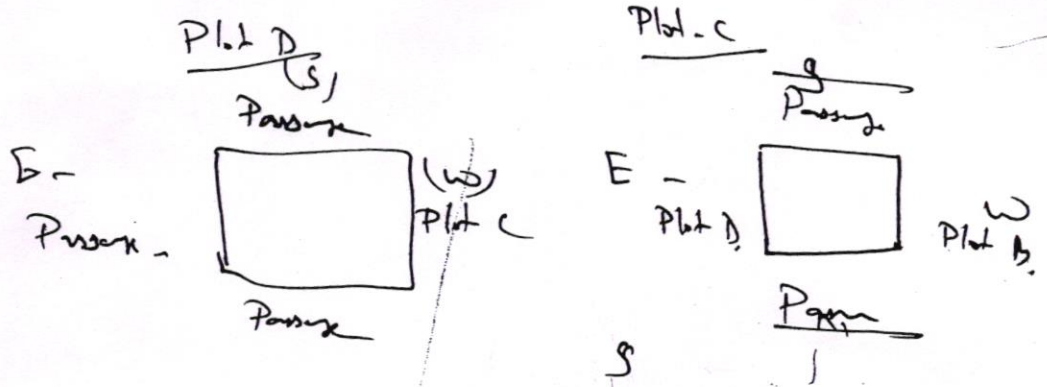 Plot D
(S)
Passage
E -
Passage -
(W)
Plot C
Passage
Plot - C
Passage
E -
Plot D.
W
Plot B.
S